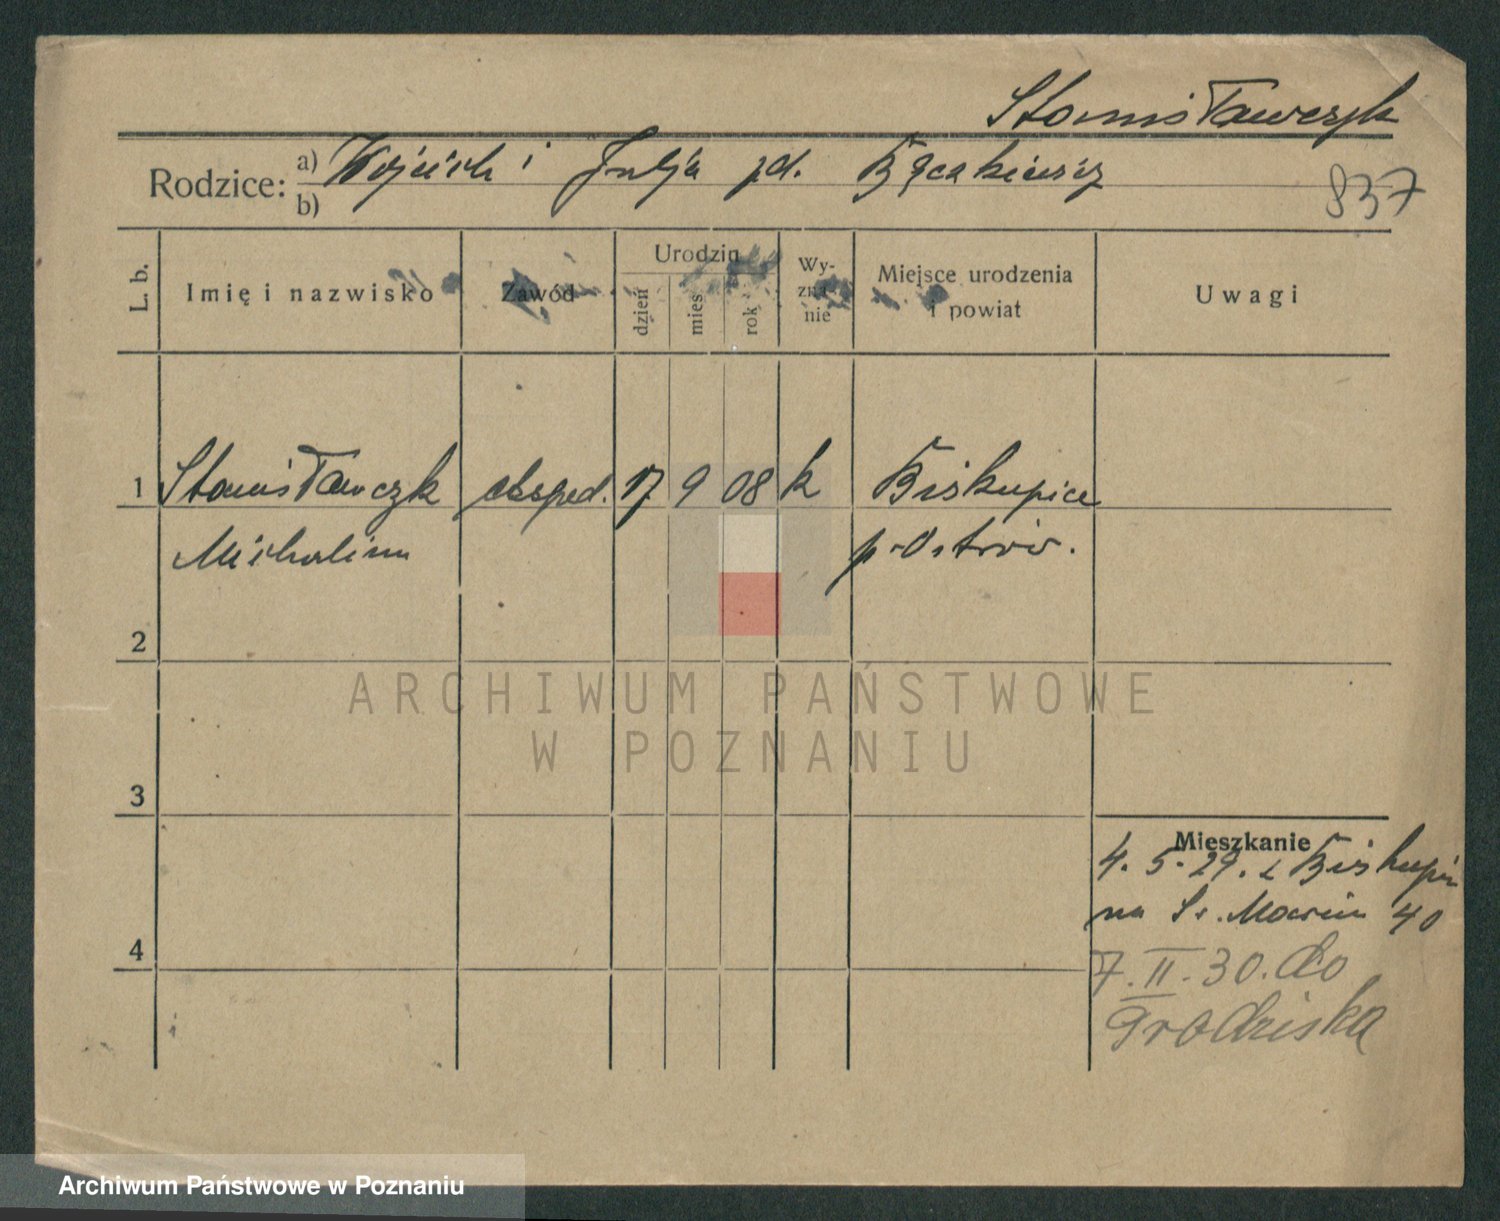 Stanisławczyk
Rodzice: a) Wojciech i Julja zd. Bączkiewicz
b)
837
L. b.
Imię i nazwisko
Zawód
Urodzin
dzień
mies
rok
Wy-
zna-
nie
Miejsce urodzenia
i powiat
Uwagi
1 Stanisławczyk eksped. 17 9 08 k Biskupice
Michalina p. Ostrów.
2
ARCHIWUM PAŃSTWOWE
W POZNANIU
3
Mieszkanie
4. 5. 29. z Biskupic
na Św. Marcin 40
4
7. II. 30. do
Grodziska
Archiwum Państwowe w Poznaniu